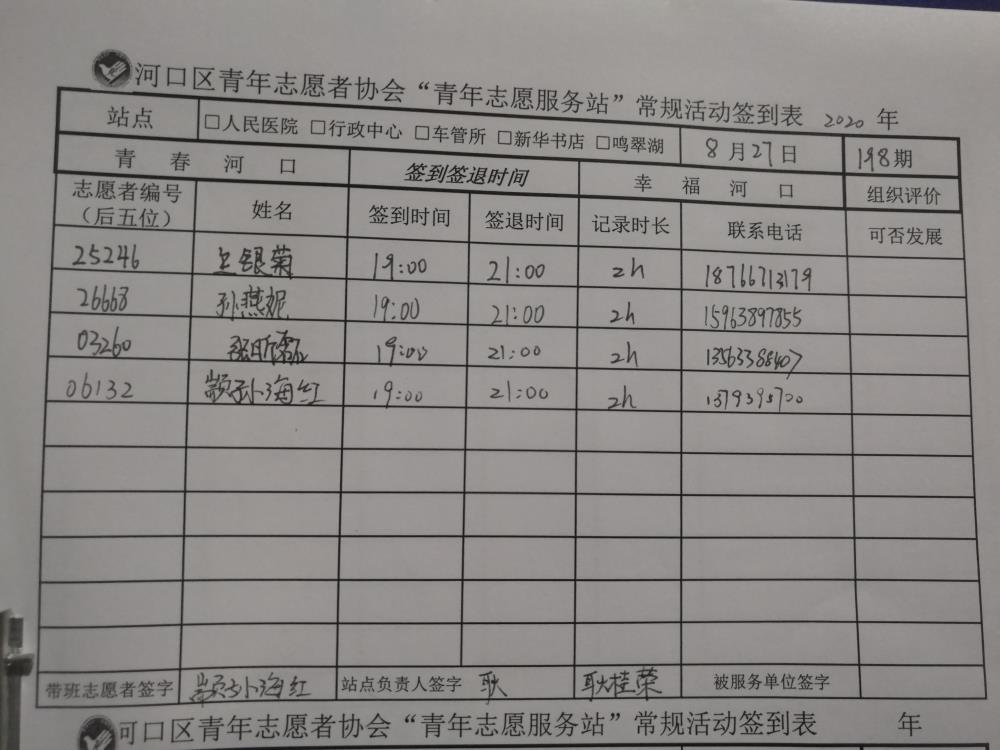 河口区青年志愿者协会“青年志愿服务站”常规活动签到表 2020 年
站点 □人民医院 □行政中心 □车管所 □新华书店 □鸣翠湖 8月27日 198期
青春河口 签到签退时间 幸福河口 组织评价
志愿者编号（后五位） 姓名 签到时间 签退时间 记录时长 联系电话 可否发展
25246 王银菊 19:00 21:00 2h 18766713179
26668 孙燕妮 19:00 21:00 2h 15963897855
03260 19:00 21:00 2h 13563388407
06132 海红 19:00 21:00 2h
带班志愿者签字 海红 站点负责人签字 耿 耿桂荣 被服务单位签字
河口区青年志愿者协会“青年志愿服务站”常规活动签到表 年